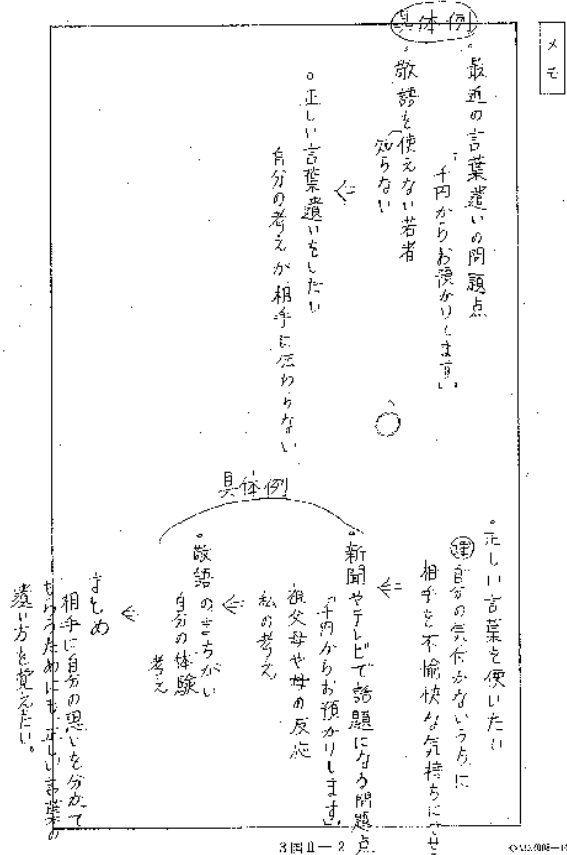 メモ
具体例
。最近の言葉遣いの問題点
「千円からお預かりします」。
。敬語を使えない若者
知らない
。正しい言葉遣いをしたい
自分の考えが相手に伝わらない
。正しい言葉を使いたい
理 自分の気付かないうちに
相手を不愉快な気持ちにさせ
具体例
。新聞やテレビで話題になる問題点
「千円からお預かりします」。
祖父母や母の反応
私の考え
。敬語のまちがい
自分の体験
考え
まとめ
相手に自分の思いを分かて
もらうためにも、正しい言葉の
遣い方を覚えたい。
3国Ⅱ-2